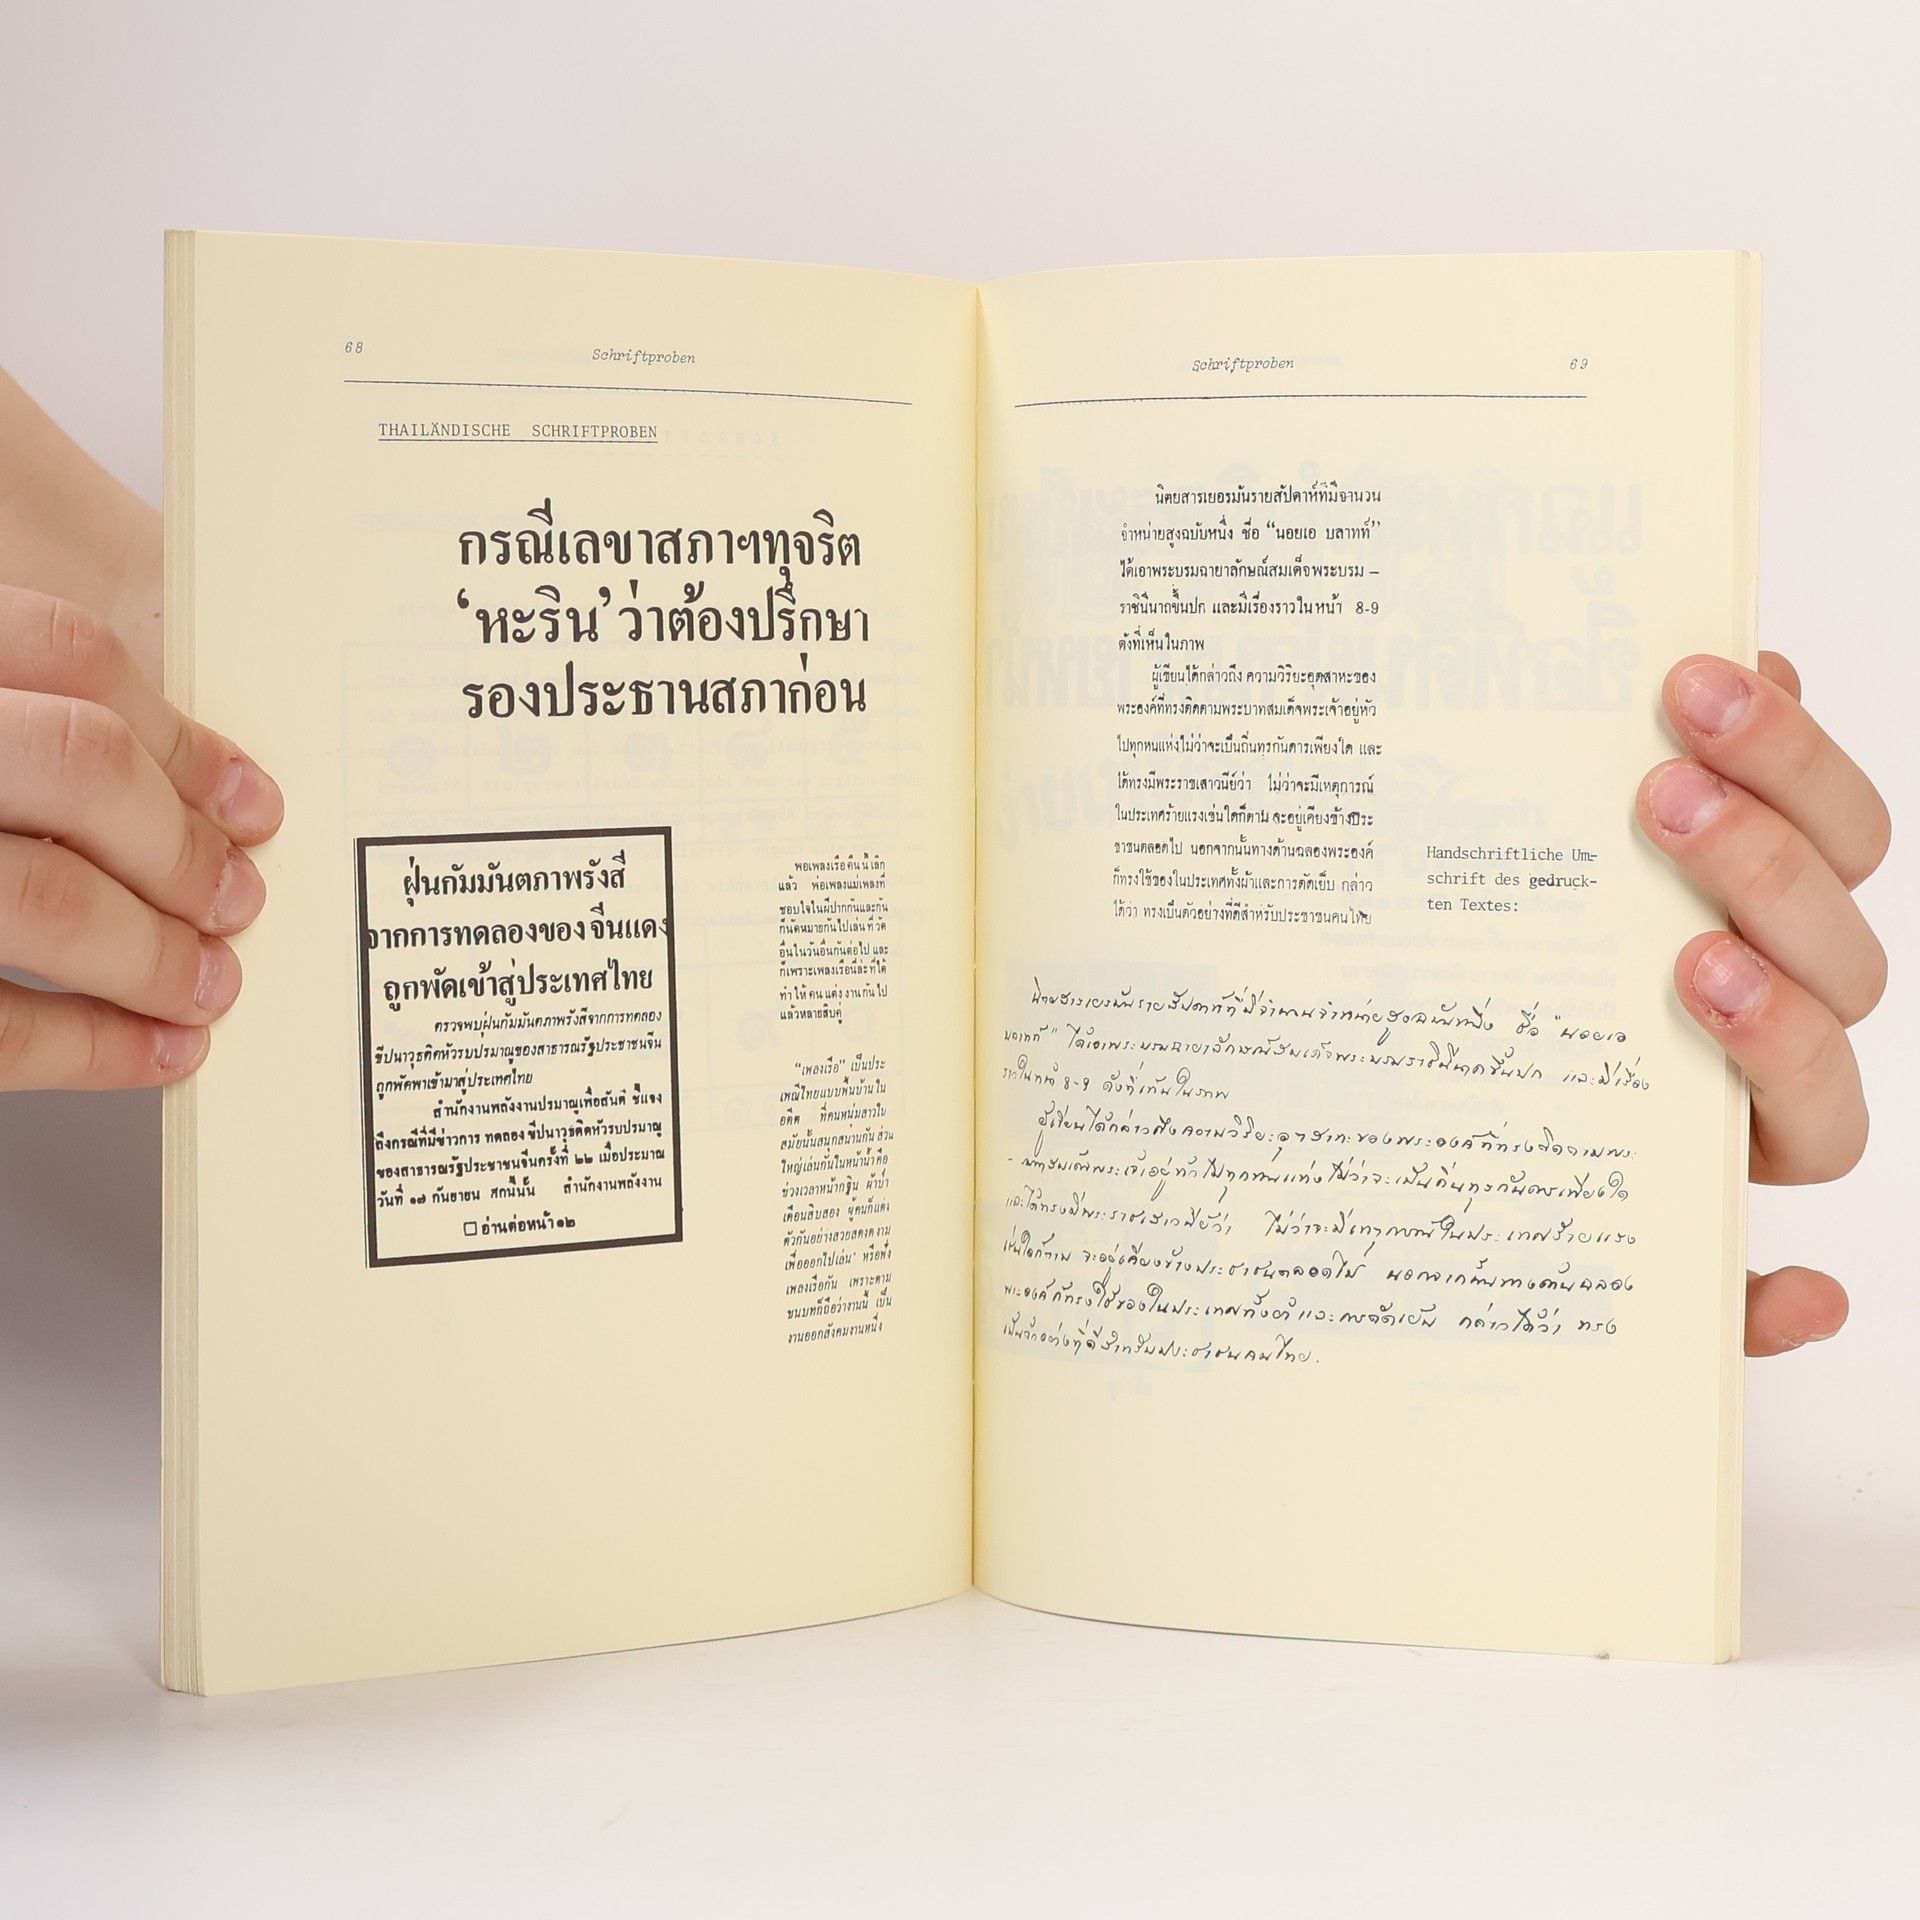 68
Schriftproben
THAILÄNDISCHE SCHRIFTPROBEN
กรณีเลขาสภาฯทุจริต
‘หะริน’ ว่าต้องปรึกษา
รองประธานสภาก่อน
ฝุ่นกัมมันตภาพรังสี
จากการทดลองของจีนแดง
ถูกพัดเข้าสู่ประเทศไทย
ตรวจพบฝุ่นกัมมันตภาพรังสีจากการทดลอง
ขีปนาวุธติดหัวรบปรมาณูของสาธารณรัฐประชาชนจีน
ถูกพัดพาเข้ามาสู่ประเทศไทย
สำนักงานพลังงานปรมาณูเพื่อสันติ ชี้แจง
ถึงกรณีที่มีข่าวการ ทดลอง ขีปนาวุธติดหัวรบปรมาณู
ของสาธารณรัฐประชาชนจีนครั้งที่ ๒๒ เมื่อประมาณ
วันที่ ๑๗ กันยายน ศกนี้นั้น สำนักงานพลังงาน
□ อ่านต่อหน้า ๑๒
พอเพลงเรือคืนนี้เลิก
แล้ว พ่อเพลงแม่เพลงที่
ชอบใจในฝีปากกันและกัน
ก็นัดหมายกันไปเล่นที่วัด
อื่นในวันอื่นกันต่อไป และ
ก็เพราะเพลงเรือนี่ล่ะที่ได้
ทำให้คนแต่งงานกันไป
แล้วหลายสิบคู่
“เพลงเรือ” เป็นประ
เพณีไทยแบบพื้นบ้านใน
อดีต ที่คนหนุ่มสาวใน
สมัยนั้นสนุกสนานกัน ส่วน
ใหญ่เล่นกันในหน้าน้ำ คือ
ช่วงเวลาหน้ากฐิน ผ้าป่า
เดือนสิบสอง ผู้คนก็แต่ง
ตัวกันอย่างสวยสดงดงาม
เพื่อออกไปเล่น หรือฟัง
เพลงเรือกัน เพราะตาม
ชนบทก็ถือว่างานนี้ เป็น
งานออกสังคมงานหนึ่ง
Schriftproben
69
นิตยสารเยอรมันรายสัปดาห์ที่มีจำนวน
จำหน่ายสูงฉบับหนึ่ง ชื่อ “นอยเอ บลาทท์”
ได้เอาพระบรมฉายาลักษณ์สมเด็จพระบรม –
ราชินีนาถขึ้นปก และมีเรื่องราวในหน้า 8-9
ดังที่เห็นในภาพ
ผู้เขียนได้กล่าวถึง ความวิริยะอุตสาหะของ
พระองค์ที่ทรงติดตามพระบาทสมเด็จพระเจ้าอยู่หัว
ไปทุกหนแห่งไม่ว่าจะเป็นถิ่นทุรกันดารเพียงใด และ
ได้ทรงมีพระราชเสาวนีย์ว่า ไม่ว่าจะมีเหตุการณ์
ในประเทศร้ายแรงเช่นใดก็ตาม จะอยู่เคียงข้างประ
ชาชนตลอดไป นอกจากนั้นทางด้านฉลองพระองค์
ก็ทรงใช้ของในประเทศทั้งผ้าและการตัดเย็บ กล่าว
ได้ว่า ทรงเป็นตัวอย่างที่ดีสำหรับประชาชนคนไทย
Handschriftliche Um-
schrift des gedruck-
ten Textes:
นิตยสารเยอรมันรายสัปดาห์ที่มีจำนวนจำหน่ายสูงฉบับหนึ่ง ชื่อ “นอยเอ
บลาทท์” ได้เอาพระบรมฉายาลักษณ์สมเด็จพระบรมราชินีนาถขึ้นปก และมีเรื่อง
ราวในหน้า 8-9 ดังที่เห็นในภาพ
ผู้เขียนได้กล่าวถึงความวิริยะอุตสาหะของพระองค์ที่ทรงติดตามพระ
- บาทสมเด็จพระเจ้าอยู่หัวไปทุกหนแห่งไม่ว่าจะเป็นถิ่นทุรกันดารเพียงใด
และได้ทรงมีพระราชเสาวนีย์ว่า ไม่ว่าจะมีเหตุการณ์ในประเทศร้ายแรง
เช่นใดก็ตาม จะอยู่เคียงข้างประชาชนตลอดไป นอกจากนั้นทางด้านฉลอง
พระองค์ ก็ทรงใช้ของในประเทศทั้งผ้า และการตัดเย็บ กล่าวได้ว่า ทรง
เป็นตัวอย่างที่ดีสำหรับประชาชนคนไทย.